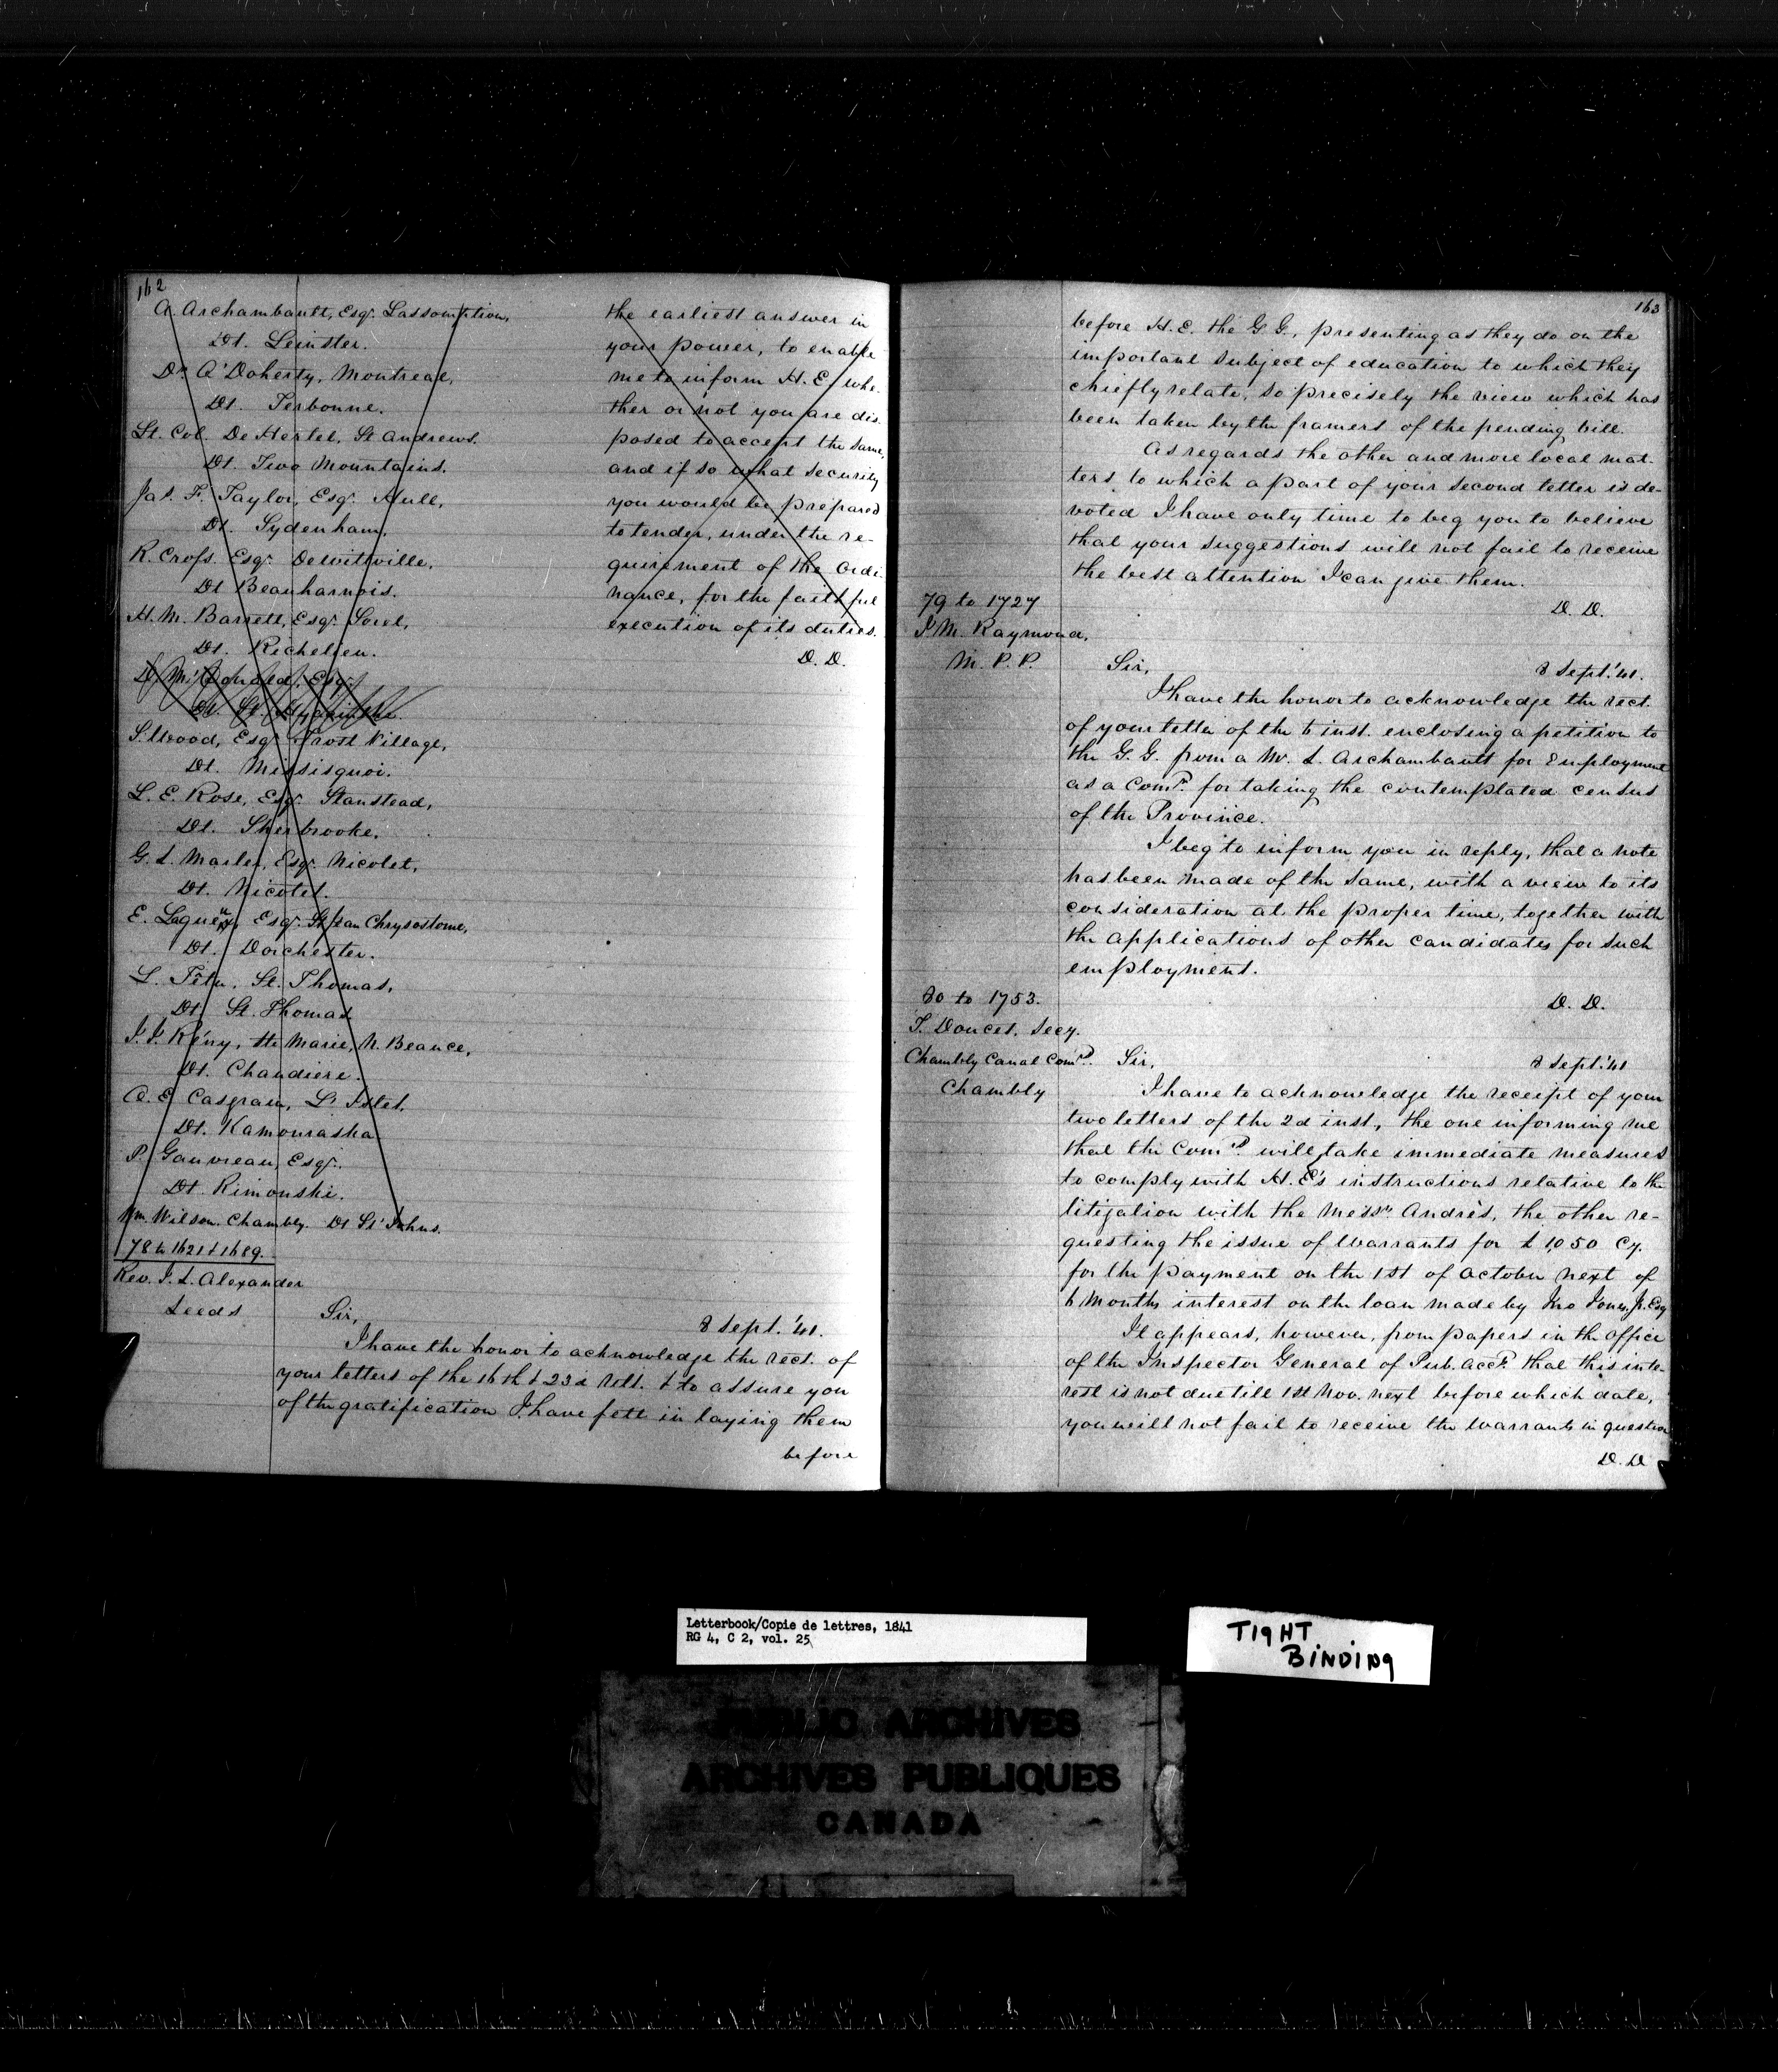 162
A. Archambault, Esqr. Lassomption,
Dt. Leinster.
Dr. O'Doherty, Montreal,
Dt. Terbonne.
Lt. Col. De Hertel, St Andrews.
Dt. Two Mountains.
Jas. F. Taylor, Esqr. Hull,
Dt. Sydenham,
R. Cross. Esqr. Dewittville,
Dt Beauharnois.
H. M. Barrett, Esqr. Sorel,
Dt. Richelieu.
D. McDonald, Esqr.
Dt. St. Hyacinthe
S. Wood, Esqr. Frost Village,
Dt. Missisquoi.
L. E. Rose, Esqr. Stanstead,
Dt. Sherbrooke,
G. L. Marler, Esqr. Nicolet,
Dt. Nicolet.
E. Lagueux, Esqr. St Jean Chrysostome,
Dt. Dorchester.
L. Têtu, St. Thomas,
Dt St. Thomas
J. J. Rény, Ste Marie, N. Beauce,
Dt. Chaudiere.
O. E Casgrain, L'Islet,
Dt. Kamouraska
P. Gauvreau, Esqr.
Dt. Rimouski.
Wm. Wilson. Chambly. Dt St Johns.
the earliest answer in
your power, to enable
me to inform H. E. whe-
ther or not you are dis-
posed to accept the same,
and if so what security
you would be prepared
to tender, under the re-
quirement of the Ordi-
nance, for the faithful
execution of its duties.
D. D.
78 to 1621 & 1689.
Rev. J. L. Alexander
Leeds
Sir,
8 Sept. '41.
I have the honor to acknowledge the rect. of
your letters of the 16th & 23d Ult. & to assure you
of the gratification I have felt in laying them
before
163
before H. E. the G. G., presenting as they do on the
important subject of education to which they
chiefly relate, so precisely the view which has
been taken by the framers of the pending bill.
As regards the other and more local mat-
ters, to which a part of your second letter is de-
voted I have only time to beg you to believe
that your suggestions will not fail to receive
the best attention I can give them.
D. D.
79 to 1727
J. M. Raymond,
M. P. P.
Sir,
8 Sept. '41.
I have the honor to acknowledge the rect.
of your letter of the 6 inst. enclosing a petition to
the G. G. from a Mr. L. Archambault for Employment
as a Comr. for taking the contemplated census
of the Province.
I beg to inform you in reply, that a note
has been made of the same, with a view to its
consideration at the proper time, together with
the applications of other candidates for such
employment.
D. D.
80 to 1753.
T. Doucet, Secy.
Chambly Canal Comrs.
Chambly
Sir,
8 Sept. '41
I have to acknowledge the receipt of your
two letters of the 2d inst., the one informing me
that the Comrs. will take immediate measures
to comply with H. E's instructions relative to the
litigation with the Messrs. Andrès, the other re-
questing the issue of Warrants for £1,050 Cy.
for the payment on the 1st of October next of
6 Months interest on the loan made by Jno Jones, Jr. Esq
It appears, however, from papers in the office
of the Inspector General of Pub. Accts. that this inte-
rest is not due till 1st Nov. next before which date,
you will not fail to receive the Warrants in question
D. D
Letterbook/Copie de lettres, 1841
RG 4, C 2, vol. 25
TIGHT
BINDING
PUBLIC ARCHIVES
ARCHIVES PUBLIQUES
CANADA